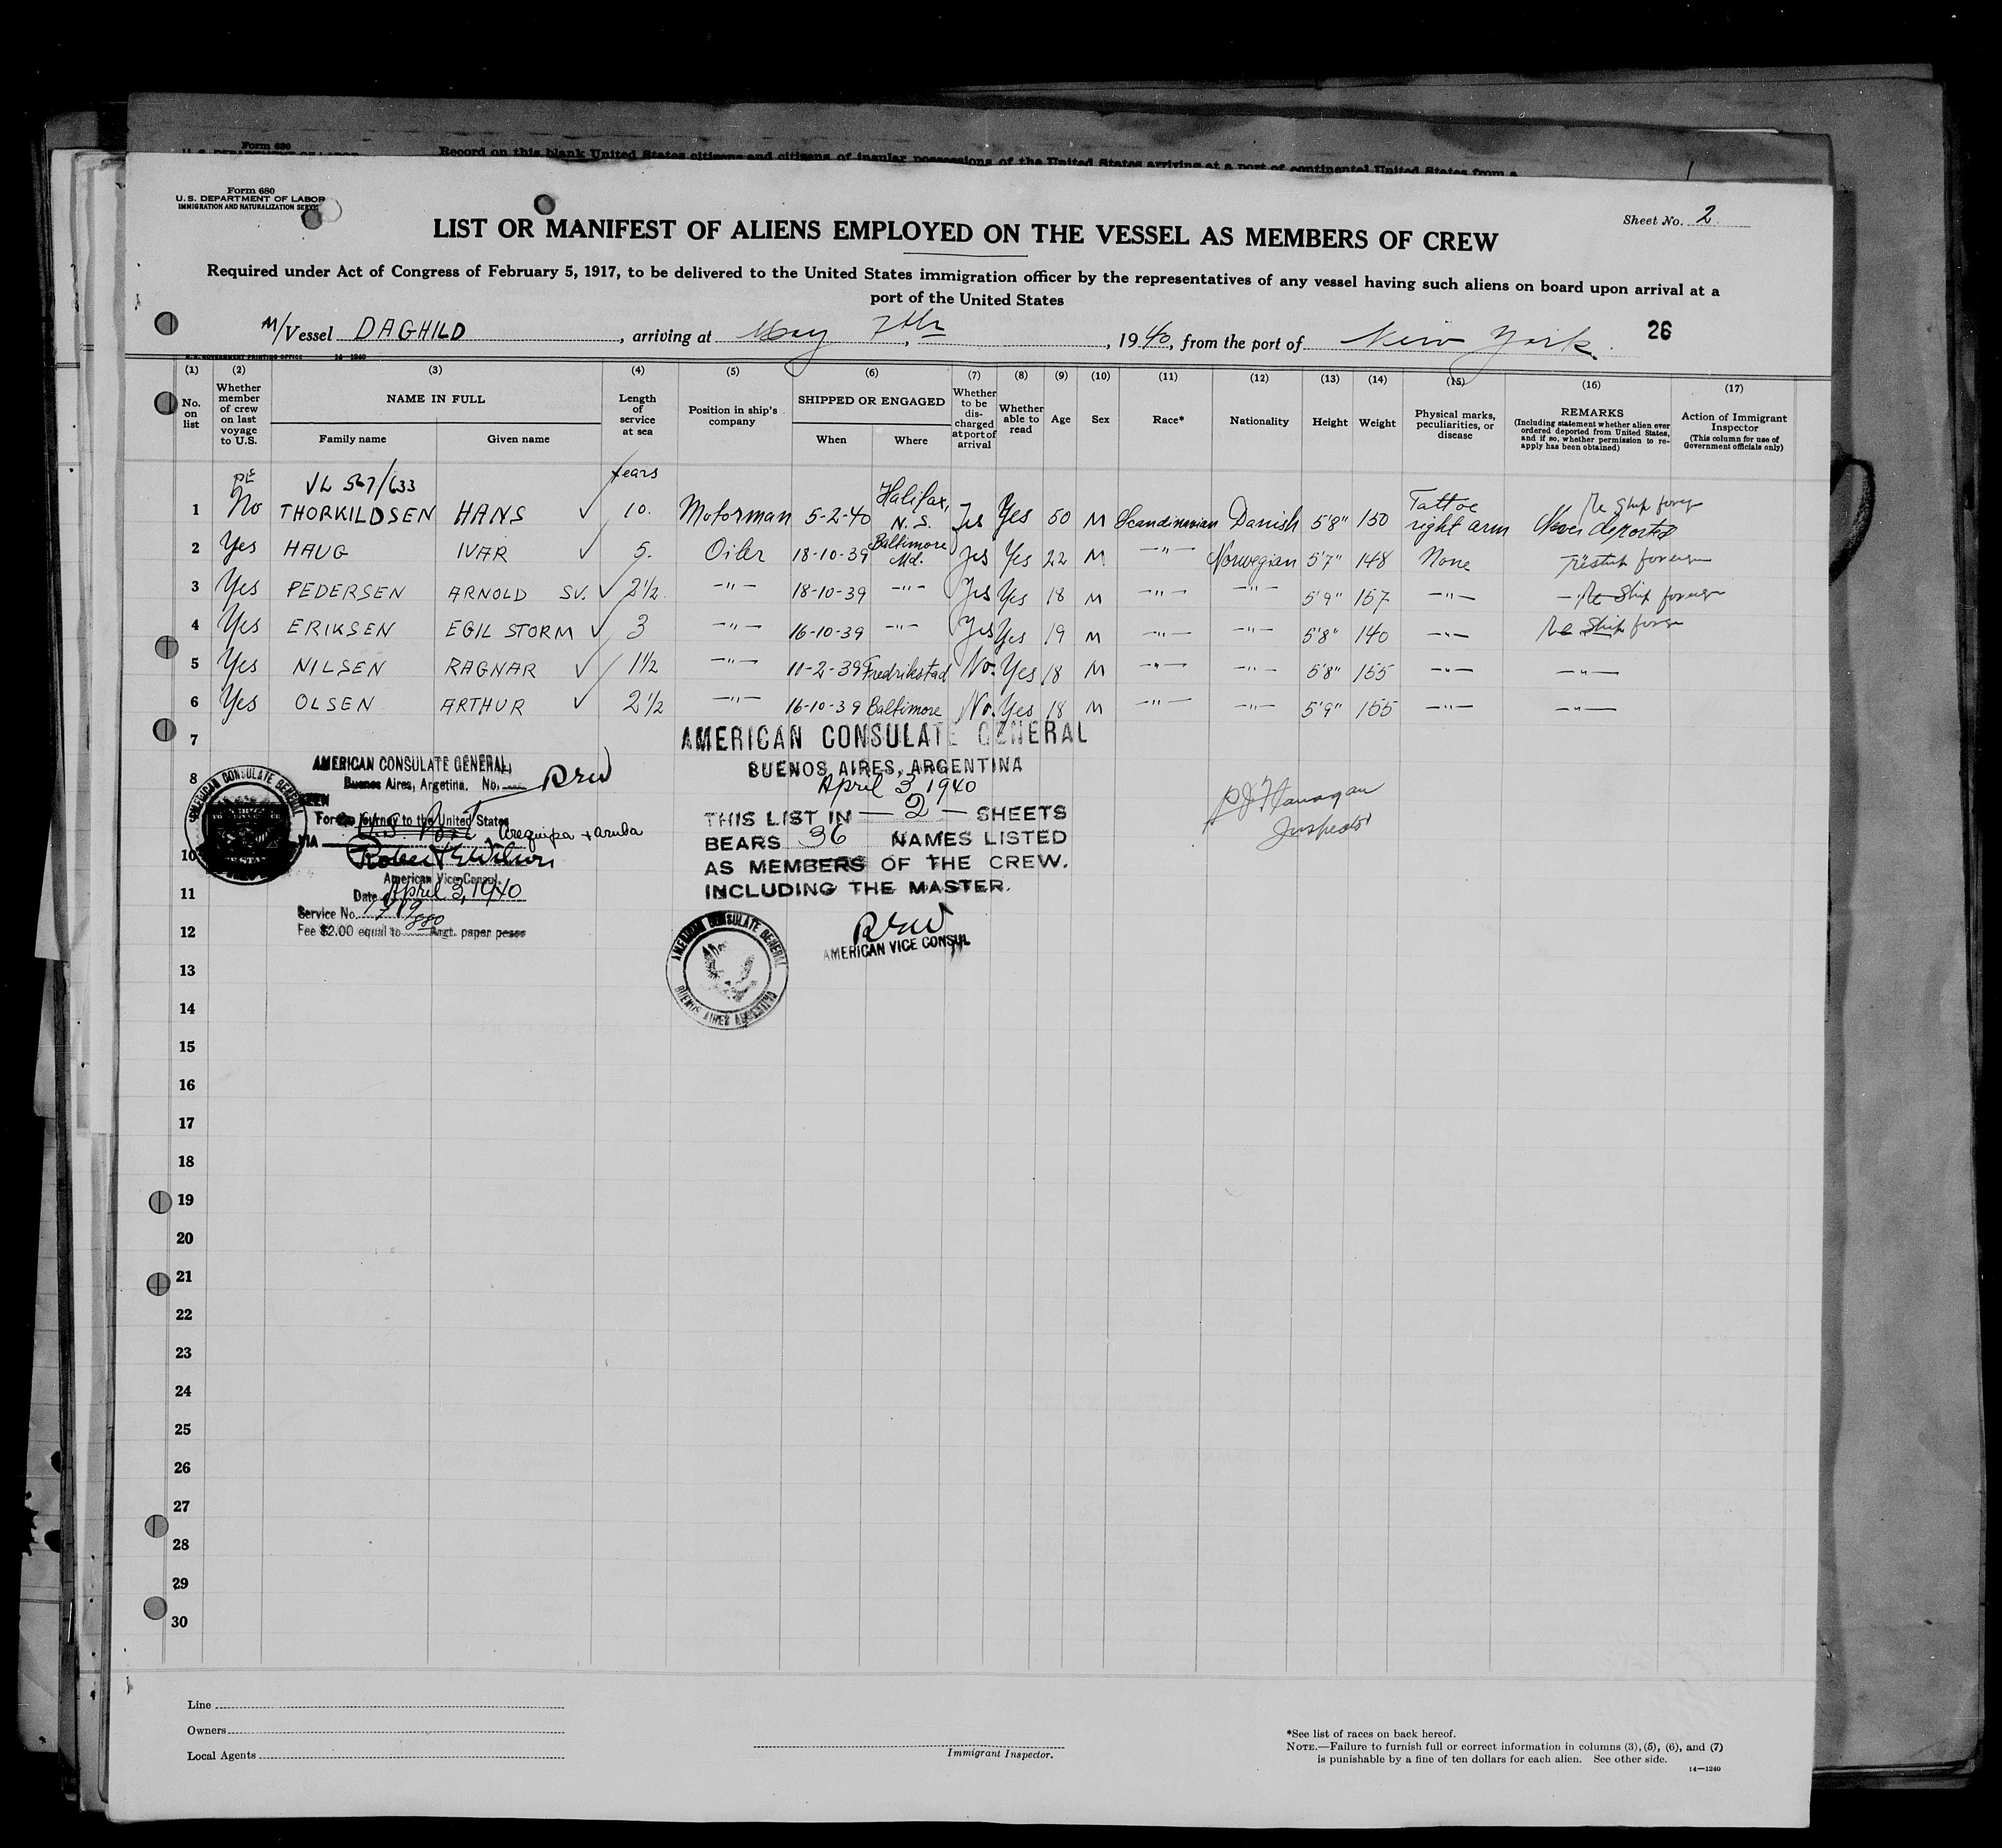 Form 680
Record on this blank United States citizens and citizens of insular possessions of the United States arriving at a port of continental United States from a
Form 680
U. S. DEPARTMENT OF LABOR
IMMIGRATION AND NATURALIZATION SERVICE
Sheet No. 2.
LIST OR MANIFEST OF ALIENS EMPLOYED ON THE VESSEL AS MEMBERS OF CREW
Required under Act of Congress of February 5, 1917, to be delivered to the United States immigration officer by the representatives of any vessel having such aliens on board upon arrival at a
port of the United States
M/Vessel DAGHILD, arriving at May 7th, 1940, from the port of New York. 26
U. S. GOVERNMENT PRINTING OFFICE 14—1240
(1) (2) (3) (4) (5) (6) (7) (8) (9) (10) (11) (12) (13) (14) (15) (16) (17)
No. on list
Whether member of crew on last voyage to U.S.
NAME IN FULL
Family name Given name
Length of service at sea
Position in ship's company
SHIPPED OR ENGAGED
When Where
Whether to be discharged at port of arrival
Whether able to read
Age
Sex
Race*
Nationality
Height
Weight
Physical marks, peculiarities, or disease
REMARKS
(Including statement whether alien ever ordered deported from United States, and if so, whether permission to reapply has been obtained)
Action of Immigrant Inspector
(This column for use of Government officials only)
VL 567/633 years
1 No THORKILDSEN HANS ✓ 10. Motorman 5-2-40 Halifax, N. S. Yes Yes 50 M Scandinavian Danish 5'8" 150 Tattoe right arm Never deported Re Ship foreign
2 Yes HAUG IVAR ✓ 5. Oiler 18-10-39 Baltimore Md. Yes Yes 22 M —"— Norwegian 5'7" 148 None reship foreign
3 Yes PEDERSEN ARNOLD SV. ✓ 2 1/2. —"— 18-10-39 —"— Yes Yes 18 M —"— —"— 5'9" 157 —"— Re Ship foreign
4 Yes ERIKSEN EGIL STORM ✓ 3 —"— 16-10-39 —"— Yes Yes 19 M —"— —"— 5'8" 140 —"— Re Ship foreign
5 Yes NILSEN RAGNAR ✓ 1 1/2 —"— 11-2-39 Fredrikstad No. Yes 18 M —"— —"— 5'8" 155 —"— —"—
6 Yes OLSEN ARTHUR ✓ 2 1/2 —"— 16-10-39 Baltimore No. Yes 18 M —"— —"— 5'9" 155 —"— —"—
7
8
10
11
12
13
14
15
16
17
18
19
20
21
22
23
24
25
26
27
28
29
30
AMERICAN CONSULATE GENERAL,
Buenos Aires, Argetina. No. REW
AMERICAN CONSULATE GENERAL
SEEN
For the journey to the United States
VIA Arequipa + Aruba
Robert E. Wilson
American Vice Consul.
Date April 3, 1940
Service No.
Fee $2.00 equal to Argt. paper pesos
AMERICAN CONSULATE GENERAL
BUENOS AIRES, ARGENTINA
April 3, 1940
THIS LIST IN — 2 — SHEETS
BEARS 36 NAMES LISTED
AS MEMBERS OF THE CREW.
INCLUDING THE MASTER.
REW
AMERICAN VICE CONSUL
AMERICAN CONSULATE GENERAL
BUENOS AIRES ARGENTINA
Flanagan
Inspector
Line
Owners
Local Agents
Immigrant Inspector.
*See list of races on back hereof.
NOTE.—Failure to furnish full or correct information in columns (3), (5), (6), and (7)
is punishable by a fine of ten dollars for each alien. See other side.
14—1240